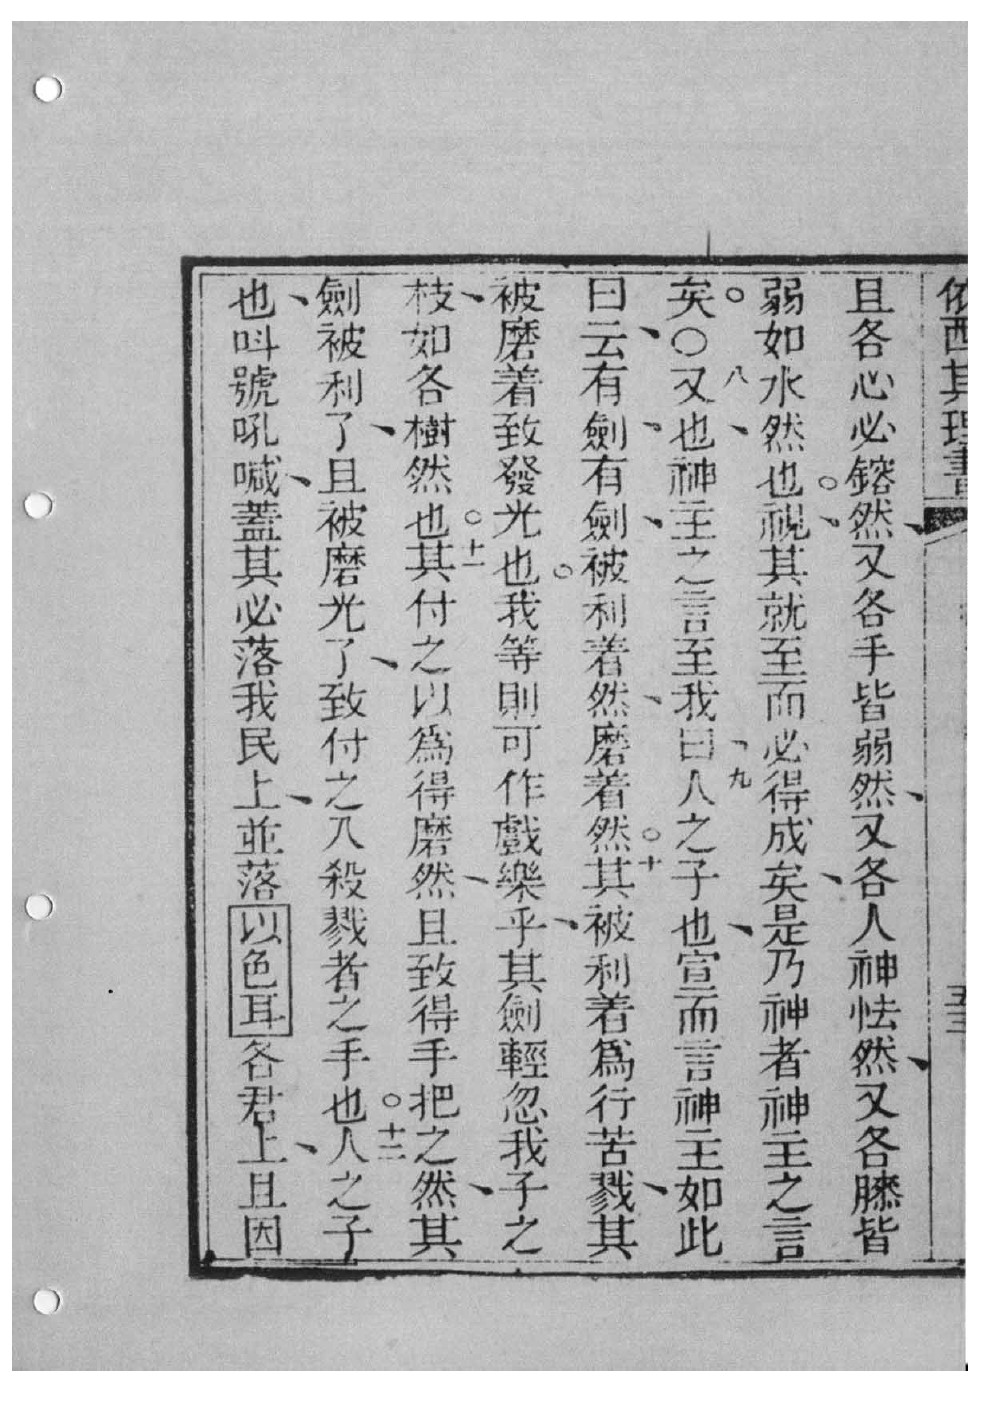 依西其理書
五三
且各心必鎔然又各手皆弱然又各人神怯然又各膝皆
弱如水然也視其就至而必得成矣是乃神者神主之言
矣○八又也神主之言至我曰九人之子也宣而言神主如此
曰云有劍有劍被利着然磨着然十其被利着爲行苦戮其
被磨着致發光也我等則可作戲樂乎其劍輕忽我子之
枝如各樹然也十一其付之以爲得磨然且致得手把之然其
劍被利了且被磨光了致付之入殺戮者之手也十二人之子
也呌號吼喊蓋其必落我民上並落以色耳各君上且因